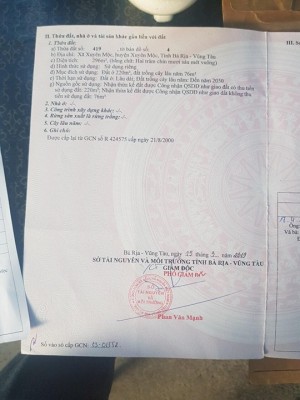 II. Thửa đất, nhà ở và tài sản khác gắn liền với đất
1. Thửa đất:
a) Thửa đất số: 419 , tờ bản đồ số: 4
b) Địa chỉ: Xã Xuyên Mộc, huyện Xuyên Mộc, Tỉnh Bà Rịa - Vũng Tàu
c) Diện tích: 296m², (bằng chữ: Hai trăm chín mươi sáu mét vuông)
d) Hình thức sử dụng: Sử dụng riêng
đ) Mục đích sử dụng: Đất ở 220m², đất trồng cây lâu năm 76m²
e) Thời hạn sử dụng: Đất ở: Lâu dài; Đất trồng cây lâu năm: Đến năm 2050
g) Nguồn gốc sử dụng: Nhận thừa kế đất được Công nhận QSDĐ như giao đất có thu tiền
sử dụng đất: 220m²; Nhận thừa kế đất được Công nhận QSDĐ như giao đất không thu
tiền sử dụng đất: 76m²
2. Nhà ở: -/-
3. Công trình xây dựng khác: -/-
4. Rừng sản xuất là rừng trồng: -/-
5. Cây lâu năm: -/-
6. Ghi chú:
Được cấp lại từ GCN số R 424575 cấp ngày 21/8/2000
Bà Rịa - Vũng Tàu, ngày 15 tháng 3 năm
SỞ TÀI NGUYÊN VÀ MÔI TRƯỜNG TỈNH BÀ RỊA - VŨNG TÀU
GIÁM ĐỐC
PHÓ GIÁM ĐỐC
SỞ
TÀI NGUYÊN
VÀ
MÔI TRƯỜNG
Phan Văn Mạnh
Số vào sổ cấp GCN:
III. S
Và hồ